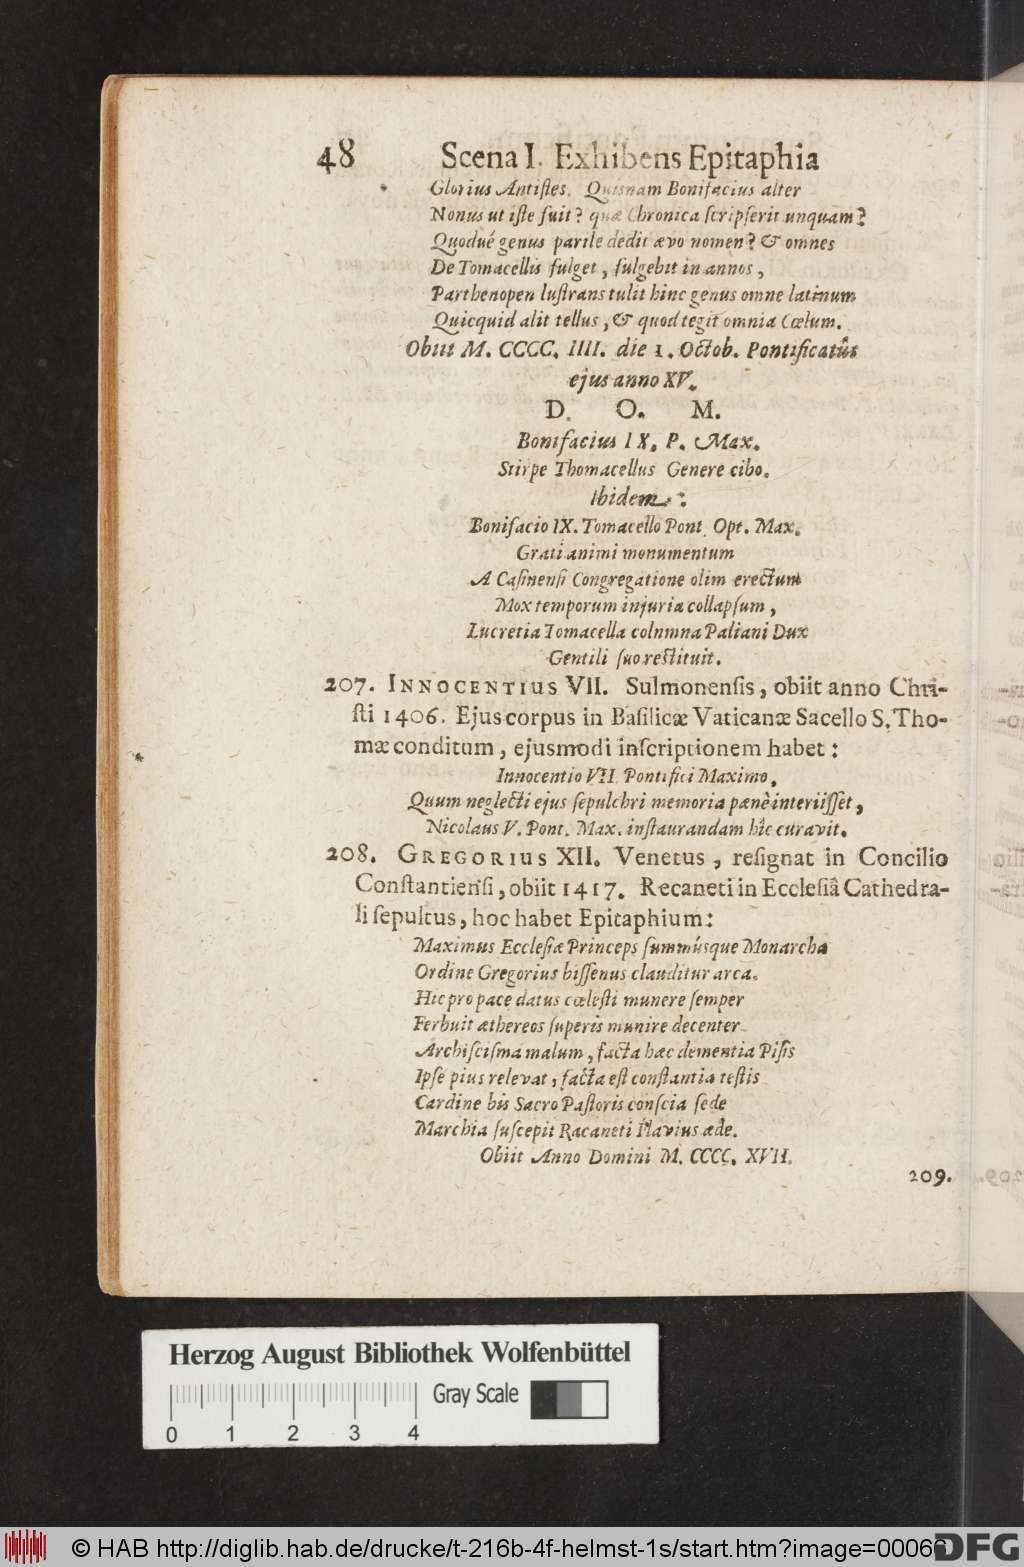 48 Scena I. Exhibens Epitaphia
Glorius Antistes. Quisnam Bonifacius alter
Nonus ut iste fuit? quæ Chronica scripserit unquam?
Quodué genus parile dedit ævo nomen? & omnes
De Tomacellis fulget, fulgebit in annos,
Parthenopen lustrans tulit hinc genus omne latinum
Quicquid alit tellus, & quod tegit omnia Cœlum.
Obiit M. CCCC. IIII. die 1. Octob. Pontificatûs
ejus anno XV.
D. O. M.
Bonifacius IX. P. Max.
Stirpe Thomacellus Genere cibo.
Ibidem:
Bonifacio IX. Tomacello Pont. Opt. Max.
Grati animi monumentum
A Casinensi Congregatione olim erectum
Mox temporum injuria collapsum,
Lucretia Tomacella colnmna Paliani Dux
Gentili suo restituit.
207. INNOCENTIUS VII. Sulmonensis, obiit anno Chri-
sti 1406. Ejus corpus in Basilicæ Vaticanæ Sacello S. Tho-
mæ conditum, ejusmodi inscriptionem habet:
Innocentio VII. Pontifici Maximo,
Quum neglecti ejus sepulchri memoria pænè interiisset,
Nicolaus V. Pont. Max. instaurandam hîc curavit.
208. GREGORIUS XII. Venetus, resignat in Concilio
Constantiensi, obiit 1417. Recaneti in Ecclesiâ Cathedra-
li sepultus, hoc habet Epitaphium:
Maximus Ecclesiæ Princeps summúsque Monarcha
Ordine Gregorius bissenus clauditur arca.
Hic pro pace datus cœlesti munere semper
Ferbuit æthereos superis munire decenter
Archiscisma malum, facta hæc dementia Pisis
Ipse pius relevat, facta est constantia testis
Cardine bis Sacro Pastoris conscia sede
Marchia suscepit Racaneti Flavius æde.
Obiit Anno Domini M. CCCC. XVII.
209.
Herzog August Bibliothek Wolfenbüttel
Gray Scale
0 1 2 3 4
© HAB http://diglib.hab.de/drucke/t-216b-4f-helmst-1s/start.htm?image=00066
DFG